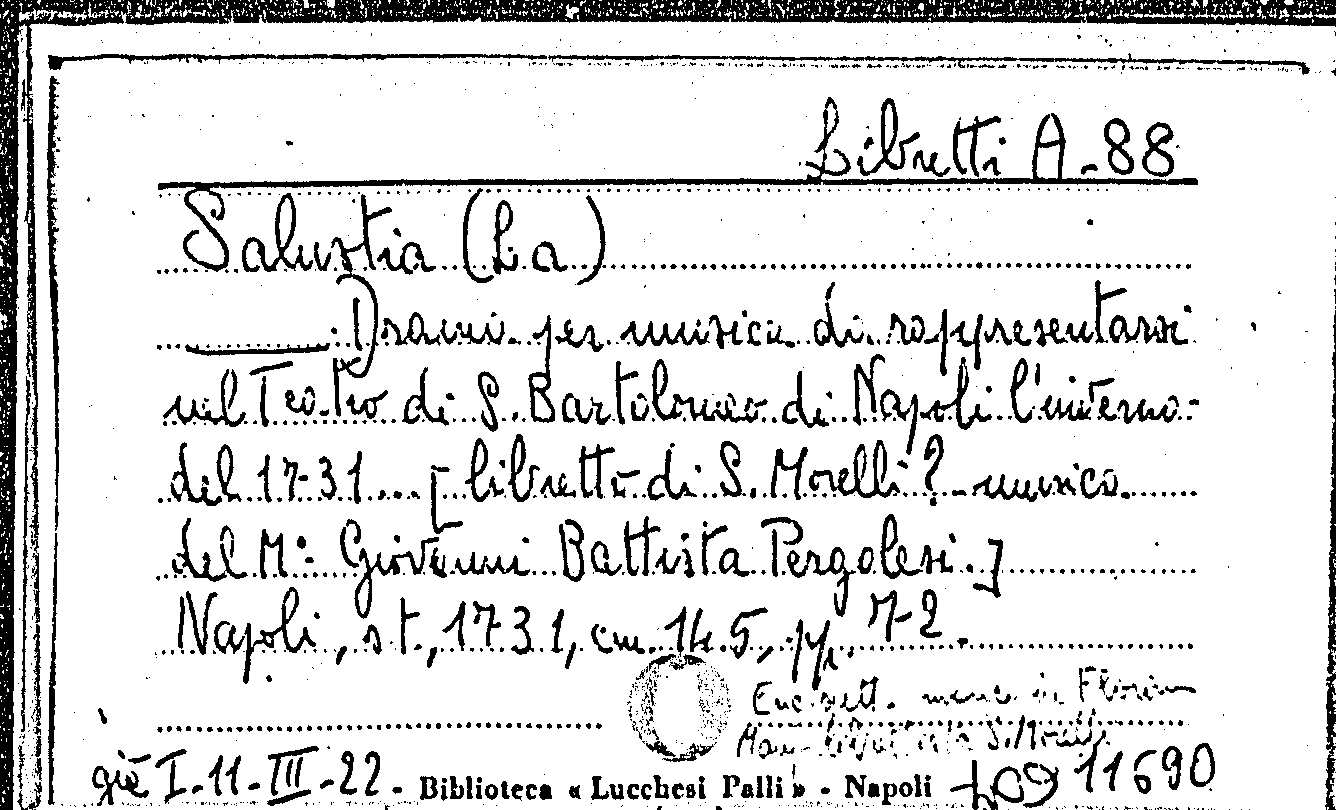 Libretti A-88
Salustia (La)
: Drama per musica da rappresentarsi
nel Teatro di S. Bartolomeo di Napoli l'inverno
del 1731... [libretto di S. Morelli? - musica
del M° Giovanni Battista Pergolesi.]
Napoli, s.t., 1731, cm. 14.5, pp. 72.
manca in Florimo
S. Morelli
già I-11-III-22. Biblioteca « Lucchesi Palli » - Napoli 11690